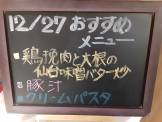 12/27 おすすめ
メニュー
鶏挽肉と大根の
仙台味噌バター炒
豚汁
クリームパスタ